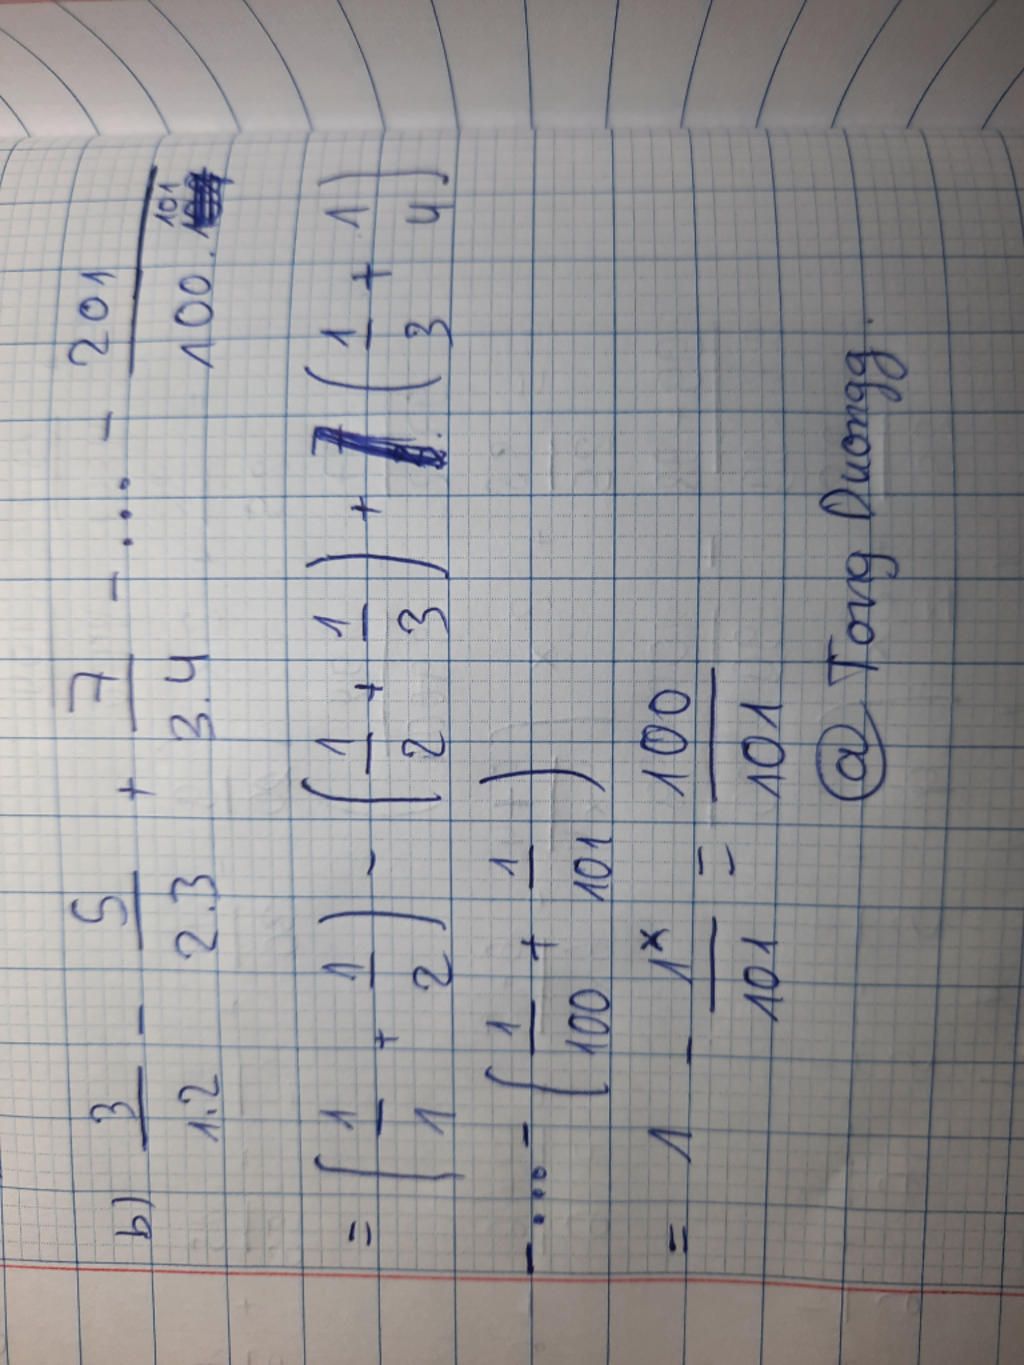 b) 3/1.2 - 5/2.3 + 7/3.4 - .... - 201/100.101
= (1/1 + 1/2) - (1/2 + 1/3) + (1/3 + 1/4)
- .... - (1/100 + 1/101)
= 1 - 1/101 = 100/101
@ Tong Duongg.